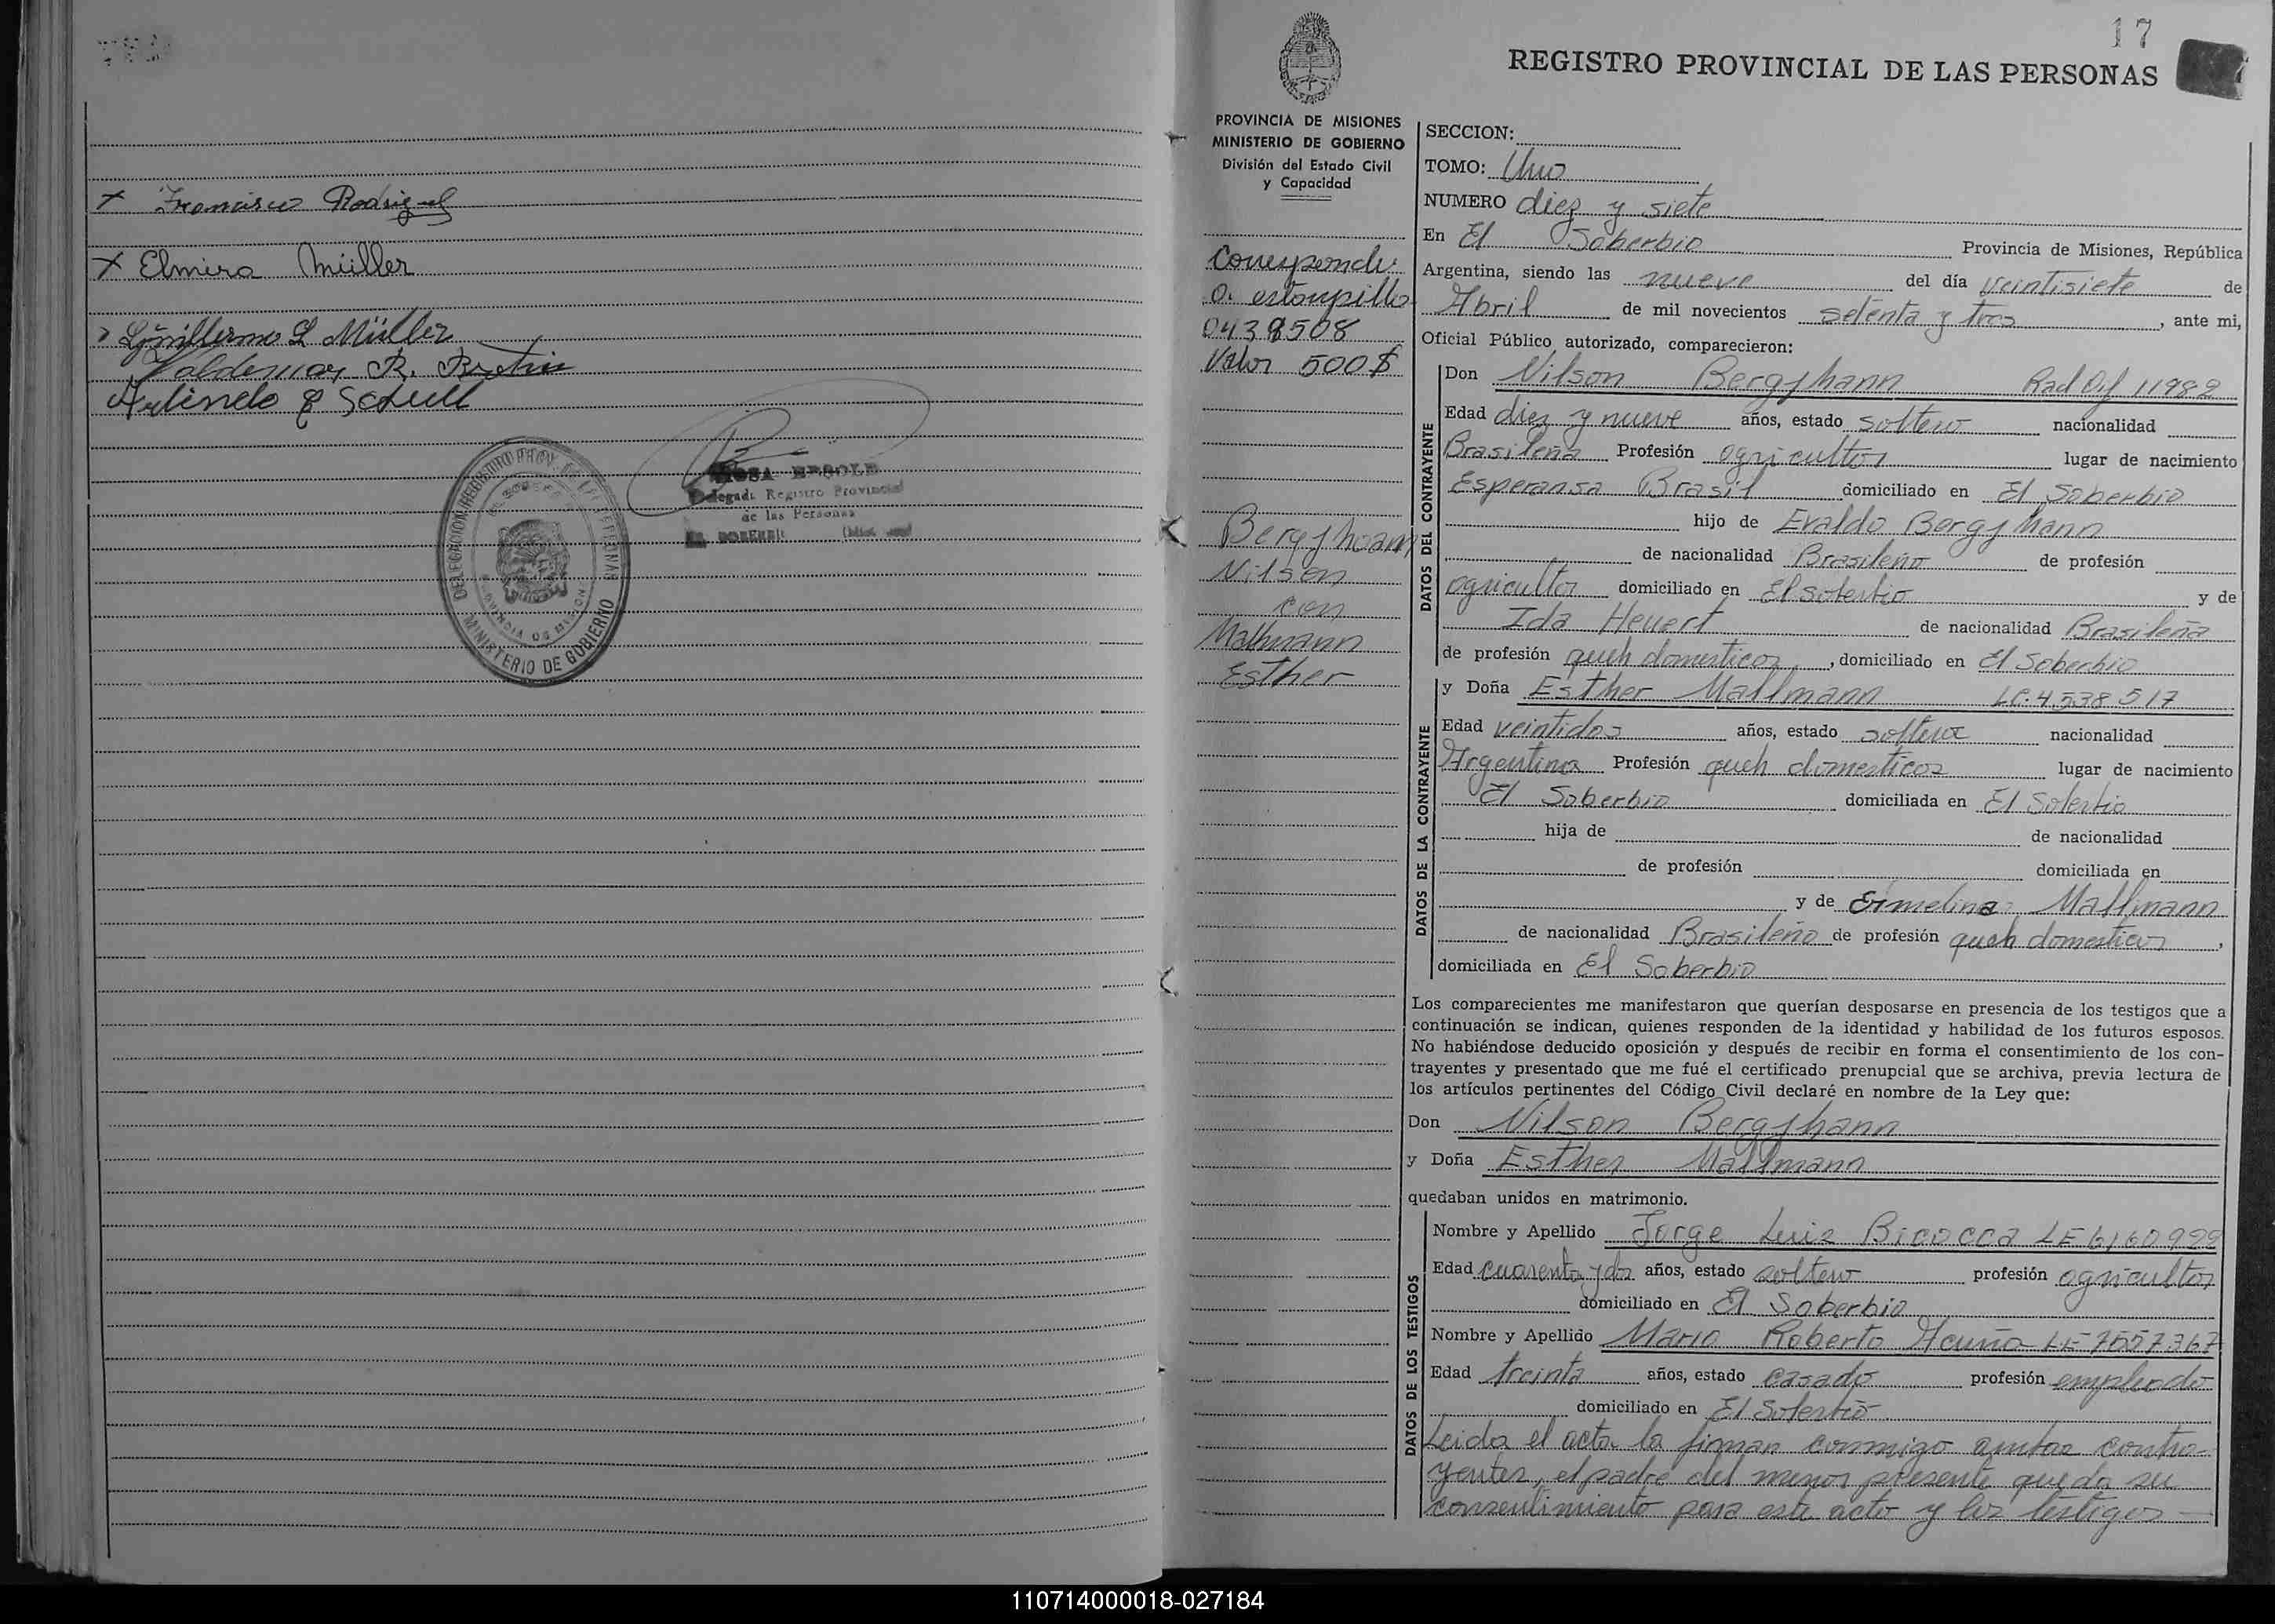 x Francisco Rodriguez
x Elmira Müller
Guillermo L Müller
Valdemar R.
Arlindo
DELEGACION REGISTRO PROV. DE LAS PERSONAS
MINISTERIO DE GOBIERNO
ROSA
Delegada Registro Provincial
de las Personas
17
REGISTRO PROVINCIAL DE LAS PERSONAS
PROVINCIA DE MISIONES
MINISTERIO DE GOBIERNO
División del Estado Civil
y Capacidad
Corresponde
a estampilla
0438508
Valor 500$
Bergshann
Nilson
con
Mallmann
Esther
SECCION:
TOMO: Uno
NUMERO diez y siete
En El Soberbio Provincia de Misiones, República
Argentina, siendo las nueve del día veintisiete de
Abril de mil novecientos setenta y tres, ante mi,
Oficial Público autorizado, comparecieron:
DATOS DEL CONTRAYENTE
Don Nilson Bergshann Rad Of 11982
Edad diez y nueve años, estado soltero nacionalidad
Brasileña Profesión agricultor lugar de nacimiento
Esperansa Brasil domiciliado en El Soberbio
hijo de Evaldo Bergshann
de nacionalidad Brasileño de profesión
agricultor domiciliado en El Soberbio y de
Ida Heuert de nacionalidad Brasileña
de profesión queh domesticos, domiciliado en El Soberbio
DATOS DE LA CONTRAYENTE
y Doña Esther Mallmann LC.4.538.517
Edad veintidos años, estado soltera nacionalidad
Argentina Profesión queh domesticos lugar de nacimiento
El Soberbio domiciliada en El Soberbio
hija de de nacionalidad
de profesión domiciliada en
y de Ermelina Mallmann
de nacionalidad Brasileña de profesión queh domesticos,
domiciliada en El Soberbio
Los comparecientes me manifestaron que querían desposarse en presencia de los testigos que a
continuación se indican, quienes responden de la identidad y habilidad de los futuros esposos.
No habiéndose deducido oposición y después de recibir en forma el consentimiento de los con-
trayentes y presentado que me fué el certificado prenupcial que se archiva, previa lectura de
los artículos pertinentes del Código Civil declaré en nombre de la Ley que:
Don Nilson Bergshann
y Doña Esther Mallmann
quedaban unidos en matrimonio.
DATOS DE LOS TESTIGOS
Nombre y Apellido Jorge Luis Bicocca LE 6160922
Edad cuarenta y dos años, estado soltero profesión agricultor
domiciliado en El Soberbio
Nombre y Apellido Mario Roberto Acuña LE 7557367
Edad treinta años, estado casado profesión empleado
domiciliado en El Soberbio
Leida el acta la firman conmigo ambos contra-
yentes, el padre del menor presente que da su
consentimiento para este acto y los testigos
110714000018-027184